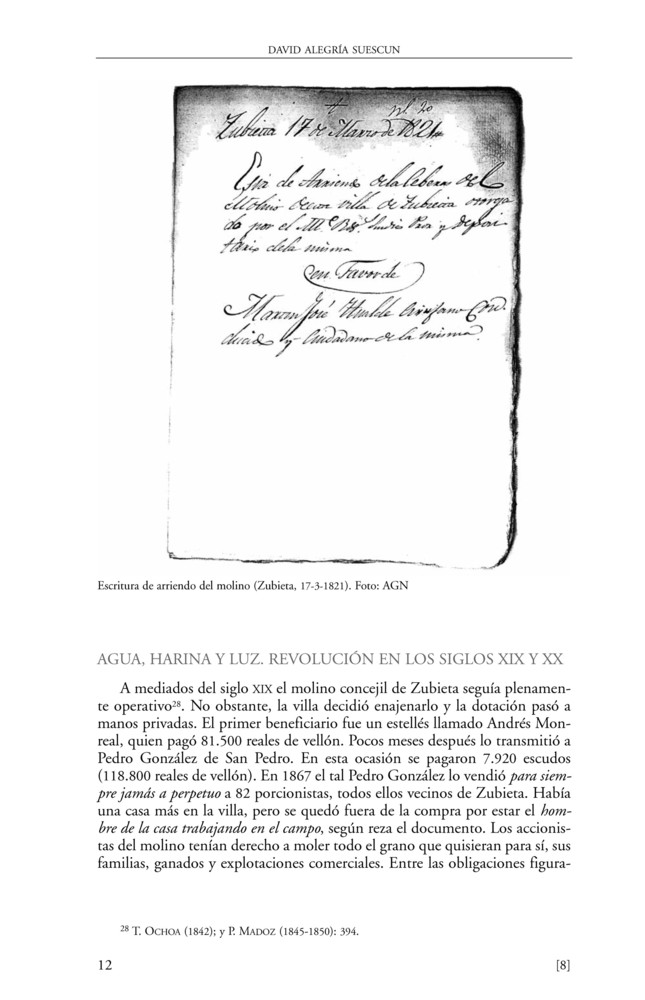 DAVID ALEGRÍA SUESCUN
Zubieta 17 de Marzo de 1821
de Arriendo de la
Molino de esta villa de Zubieta
por el y
de la misma
Con Favor de
José
y Ciudadano de la misma
Escritura de arriendo del molino (Zubieta, 17-3-1821). Foto: AGN
AGUA, HARINA Y LUZ. REVOLUCIÓN EN LOS SIGLOS XIX Y XX
A mediados del siglo XIX el molino concejil de Zubieta seguía plenamen-
te operativo28. No obstante, la villa decidió enajenarlo y la dotación pasó a
manos privadas. El primer beneficiario fue un estellés llamado Andrés Mon-
real, quien pagó 81.500 reales de vellón. Pocos meses después lo transmitió a
Pedro González de San Pedro. En esta ocasión se pagaron 7.920 escudos
(118.800 reales de vellón). En 1867 el tal Pedro González lo vendió para siem-
pre jamás a perpetuo a 82 porcionistas, todos ellos vecinos de Zubieta. Había
una casa más en la villa, pero se quedó fuera de la compra por estar el hom-
bre de la casa trabajando en el campo, según reza el documento. Los accionis-
tas del molino tenían derecho a moler todo el grano que quisieran para sí, sus
familias, ganados y explotaciones comerciales. Entre las obligaciones figura-
28 T. OCHOA (1842); y P. MADOZ (1845-1850): 394.
12 [8]